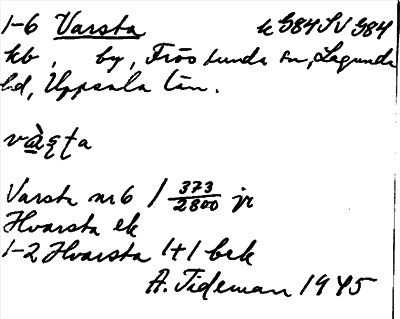 1-6 Varsta k G84SV G84
kb, by, Frösunda sn, Lagunda
hd, Uppsala län.
Varsta nr 6 1 373/2800 jr
Hvarsta ek
1-2 Hvarsta 1+1 bek
A. Tideman 1945